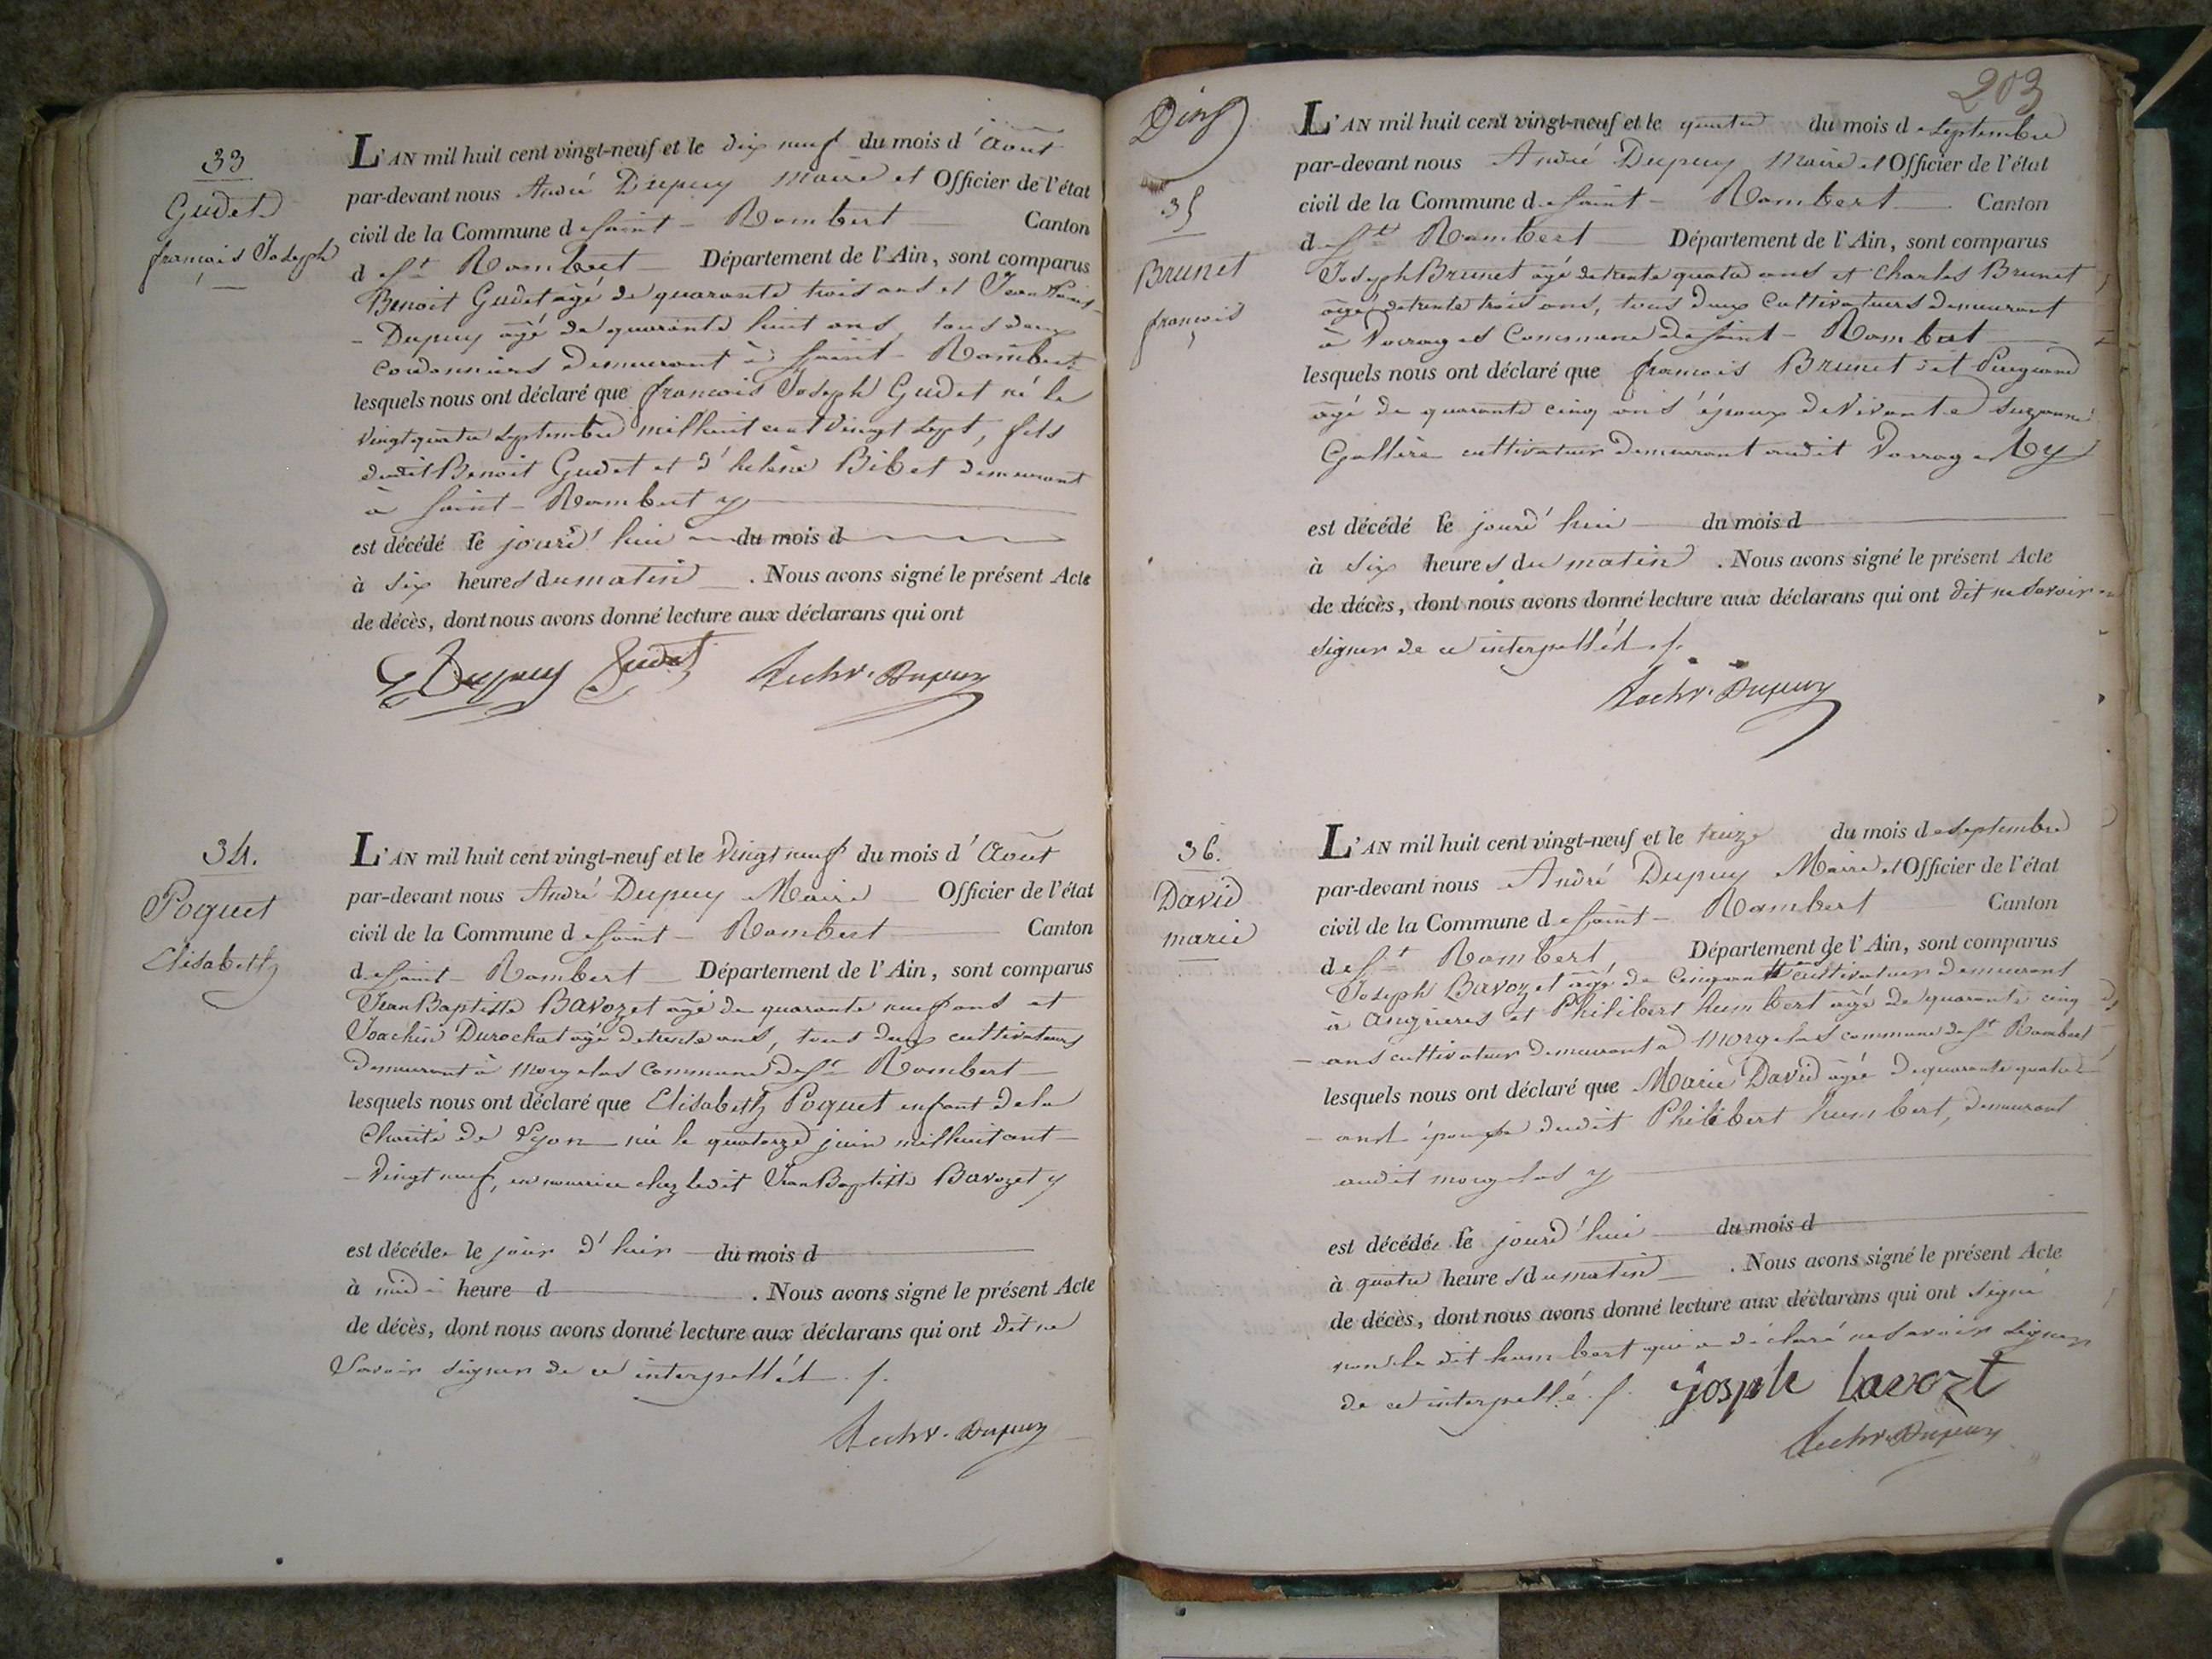 33
Gudet
françois Joseph
L'AN mil huit cent vingt-neuf et le dix neuf du mois d'Août
par-devant nous André Dupuy Maire et Officier de l'état
civil de la Commune de Saint-Rambert Canton
de St Rambert Département de l'Ain, sont comparus
Benoit Gudet âgé de quarante trois ans et Jean
Dupuy âgé de quarante huit ans, tous deux
cordonniers demeurant à Saint-Rambert
lesquels nous ont déclaré que françois Joseph Gudet né le
vingt quatre septembre mil huit cent vingt sept, fils
dudit Benoit Gudet et d'helène Bibet demeurant
à Saint-Rambert
est décédé le jourd'hui du mois d
à six heures du matin . Nous avons signé le présent Acte
de décès, dont nous avons donné lecture aux déclarans qui ont
Dupuy Gudet Dupuy
34.
Poquet
Elisabeth
L'AN mil huit cent vingt-neuf et le vingt neuf du mois d'Août
par-devant nous André Dupuy Maire Officier de l'état
civil de la Commune de Saint-Rambert Canton
de Saint-Rambert Département de l'Ain, sont comparus
Jean Baptiste Bavozet âgé de quarante neuf ans et
Joachin Durochat âgé de trente ans, tous deux cultivateurs
demeurant à Morgelas Commune de St Rambert
lesquels nous ont déclaré que Elisabeth Poquet enfant de la
Charité de Lyon née le quatorze juin mil huit cent
vingt neuf, en nourrice chez ledit Jean Baptiste Bavozet
est décédée le jour d'huir du mois d
à midi heure d . Nous avons signé le présent Acte
de décès, dont nous avons donné lecture aux déclarans qui ont dit ne
savoir signer de ce interpellés ./.
Dupuy
203
35
Brunet
françois
L'AN mil huit cent vingt-neuf et le quatre du mois de septembre
par-devant nous André Dupuy Maire et Officier de l'état
civil de la Commune de Saint-Rambert Canton
de St Rambert Département de l'Ain, sont comparus
Joseph Brunet âgé de trente quatre ans et Charles Brunet
âgé de trente trois ans, tous deux Cultivateurs demeurant
à Vorrages Commune de Saint-Rambert
lesquels nous ont déclaré que françois Brunet dit
âgé de quarante cinq ans époux de vivante Suzanne
Gallère cultivateur demeurant audit Vorrages
est décédé le jourd'hui du mois d
à six heures du matin . Nous avons signé le présent Acte
de décès, dont nous avons donné lecture aux déclarans qui ont dit ne savoir
signer de ce interpellés ./.
Dupuy
36.
David
marie
L'AN mil huit cent vingt-neuf et le treize du mois de septembre
par-devant nous André Dupuy Maire et Officier de l'état
civil de la Commune de Saint-Rambert Canton
de St Rambert, Département de l'Ain, sont comparus
Joseph Bavozet âgé de cinquante ans cultivateur demeurant
à Angrieres et Philibert humbert âgé de quarante cinq
ans cultivateur demeurant à Morgelas commune de St Rambert
lesquels nous ont déclaré que Marie David âgée de quarante quatre
ans épouse dudit Philibert humbert, demeurant
audit morgelas
est décédée le jourd'hui du mois d
à quatre heures du matin . Nous avons signé le présent Acte
de décès, dont nous avons donné lecture aux déclarans qui ont signé
non le dit humbert qui a déclaré ne savoir signer
de ce interpellé ./. josple bavozt
Dupuy